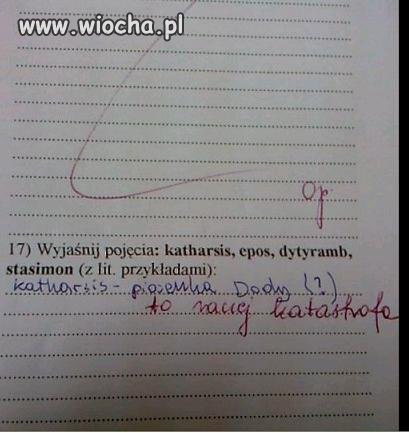 www.wiocha.pl
0p
17) Wyjaśnij pojęcia: katharsis, epos, dytyramb,
stasimon (z lit. przykładami):
katharsis - piosenka Dody (?)
to raczej katastrofa